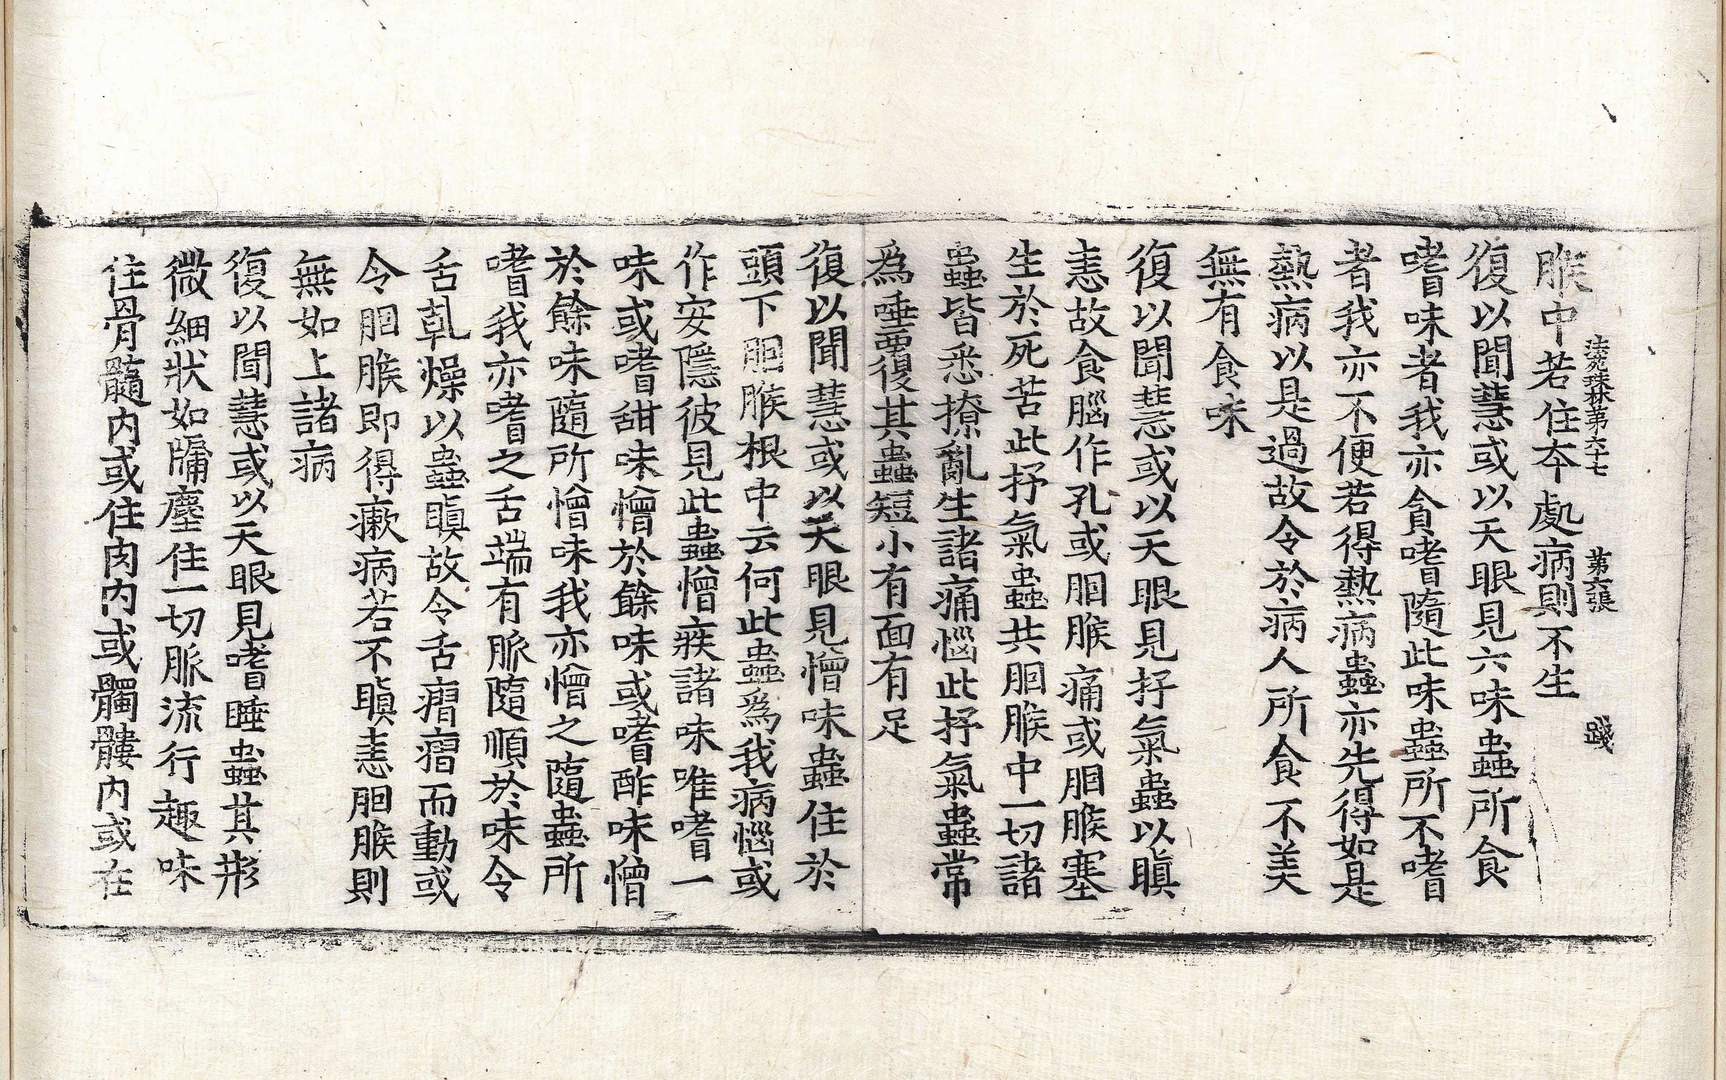 法苑珠林第六十七　第六張　踐
睺中若住本處病則不生
復以聞慧或以天眼見六味蟲所食
嗜味者我亦貪嗜隨此味蟲所不嗜
者我亦不便若得熱病蟲亦先得如是
熱病以是過故令於病人所食不美
無有食味
復以聞慧或以天眼見抒氣蟲以瞋
恚故食腦作孔或胭睺痛或胭睺塞
生於死苦此抒氣蟲共胭睺中一切諸
蟲皆悉撩亂生諸痛惱此抒氣蟲常
爲唾覆其蟲短小有面有足
復以聞慧或以天眼見憎味蟲住於
頭下胭睺根中云何此蟲爲我病惱或
作安隱彼見此蟲憎疾諸味唯嗜一
味或嗜甜味憎於餘味或嗜酢味憎
於餘味隨所憎味我亦憎之隨蟲所
嗜我亦嗜之舌端有脈隨順於味令
舌乹燥以蟲瞋故令舌𤺋𤺋而動或
令胭睺即得瘶病若不瞋恚胭睺則
無如上諸病
復以聞慧或以天眼見嗜睡蟲其形
微細狀如牖塵住一切脈流行趣味
住骨髓内或住肉内或髑髏内或在